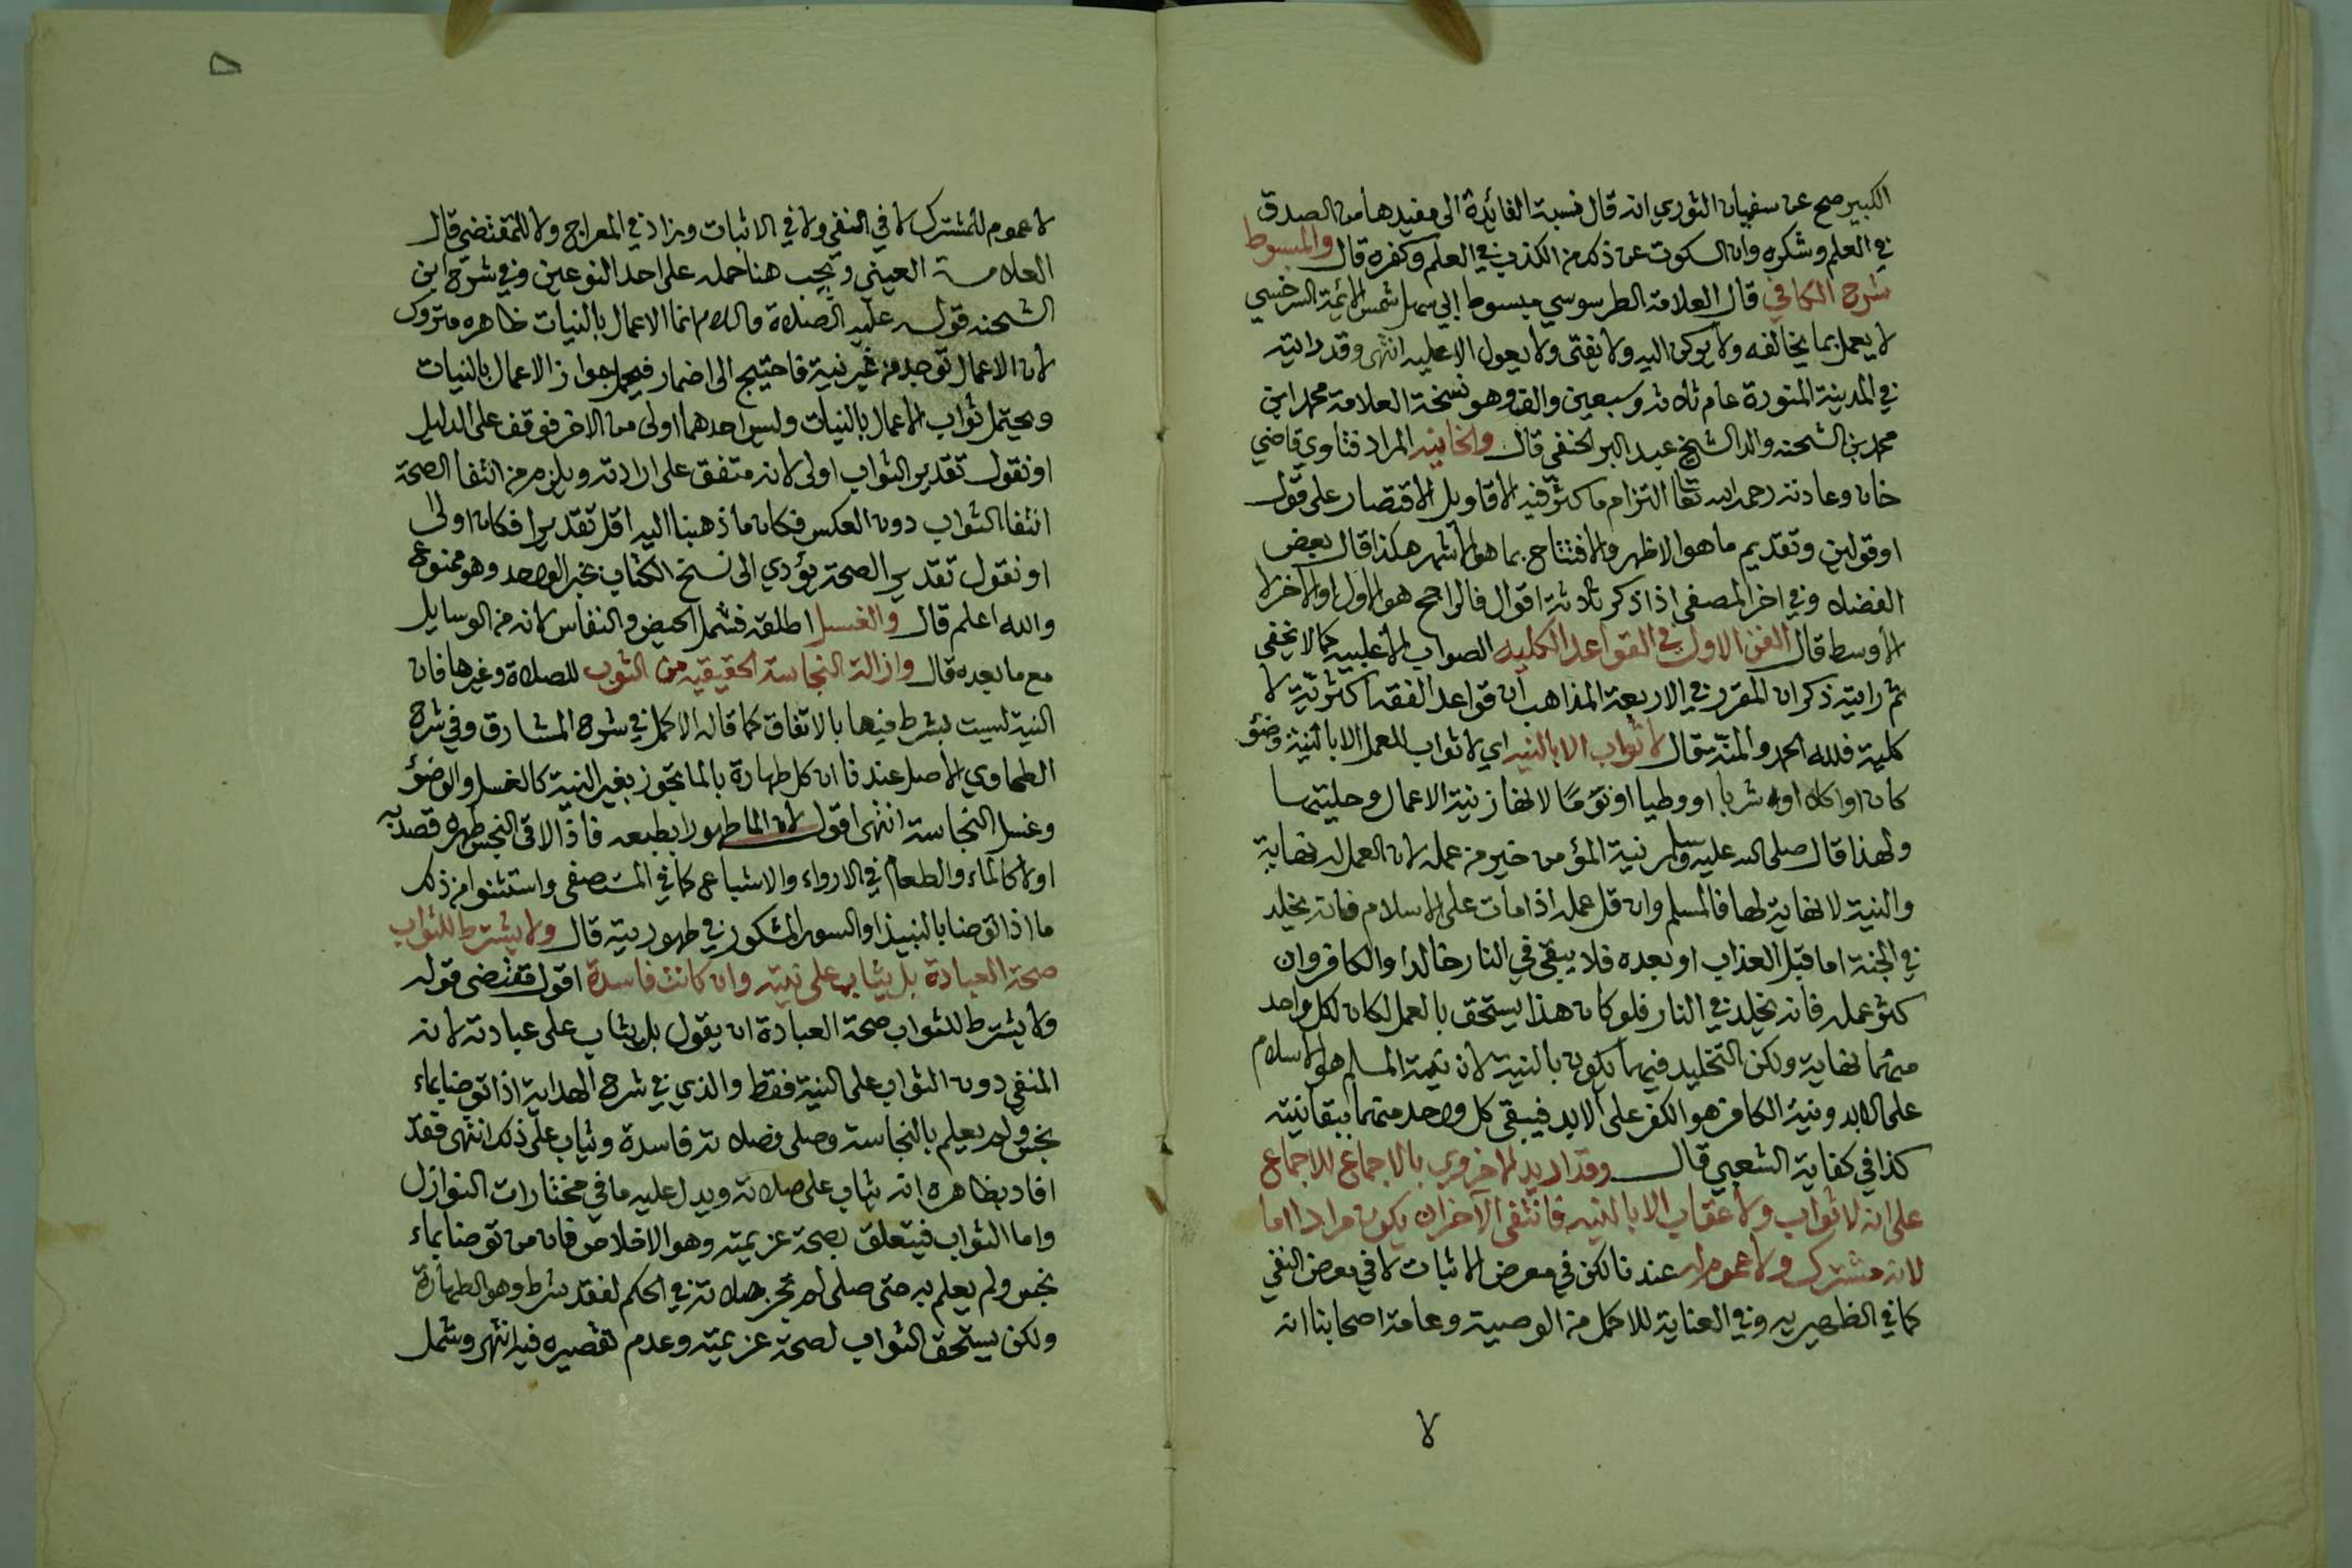 الكبير صح عن سفيان الثوري انه قال نسبة الفائدة الى مفيدها من الصدق
في العلم وشكره وان السكوت عن ذلك من الكذب في العلم وكفره قال والمبسوط
شرح الكافي قال العلامة الطرسوسي مبسوط ابي سهل شمس الائمة السرخسي
لا يعمل بما يخالفه ولا يركن اليه ولا يفتى ولا يعول الا عليه انتهى وقد رايته
في المدينة المنورة عام ثلاثة وسبعين والف وهو نسخة العلامة محمد ابن
محمد بن الشحنه والد الشيخ عبد البر الحنفي قال والخانيه المراد فتاوي قاضي
خان وعادته رحمه الله تعا التزام ما كثر فيه الاقاويل الاقتصار على قول
او قولين وتقديم ما هو الاظهر والافتتاح بما هو الاشهر هكذا قال بعض
الفضلا وفي اخر المصفى اذا ذكر ثلاثة اقوال فالراجح هو الاول او الآخر لا
الاوسط قال الفن الاول في القواعد الكليه الصواب الاغلبيه كما لا يخفى
ثم رايته ذكر ان المقرر في الاربعة المذاهب ان قواعد الفقه اكثريّة لا
كلية فلله الحمد والمنة قال لا ثواب الا بالنيه اي لا ثواب للعمل الا بالنية وضؤ
كان او اكلا او شربا او وطيا او نومًا لانها زنية الاعمال وحليتها
ولهذا قال صلى الله عليه وسلم نية المؤمن خير من عمله لان العمل له نهاية
والنية لا نهاية لها فالمسلم وان قل عمله اذا مات على الاسلام فانه يخلد
في الجنة اما قبل العذاب او بعده فلا يبقى في النار خالدا والكافر وان
كثر عمله فانه يخلد في النار فلو كان هذا يستحق بالعمل لكان لكل واحد
منهما نهاية ولكن التخليد فيهما يكون بالنية لان نية المسلم هو الاسلام
على الابد ونية الكافر هو الكفر على الابد فيبقى كل واحد منهما ببقا نيته
كذا في كفاية الشعبي قال وقد اريد الاخروي بالاجماع للاجماع
على انه لا ثواب ولا عقاب الا بالنيه فانتفى الآخر ان يكون مرادا اما
لانه مشترك ولا عموم له عندنا لكن في معرض الاثبات لا في معرض النفي
كما في الظهيريه وفي العناية للاكمل من الوصية وعامة اصحابنا انه
لا
لا عموم للمشترك لا في النفي ولا في الاثبات وزاد في المعراج ولا للمقتضى قال
العلامة العيني ويجب هنا حمله على احد النوعين وفي شرح ابن
الشحنه قوله عليه الصلاة والسلام انما الاعمال بالنيات ظاهره متروك
لان الاعمال توجد من غير نية فاحتيج الى اضمار فيحمل جواز الاعمال بالنيات
ويحتمل ثواب الاعمال بالنيات وليس احدهما اولى من الاخر فوقف على الدليل
او نقول تقدير الثواب اولى لانه متفق على ارادته ويلزم من انتفا الصحة
انتفا الثواب دون العكس فكان ما ذهبنا اليه اقل تقديرا فكان اولى
او نقول تقدير الصحة يؤدي الى نسخ الكتاب بخبر الواحد وهو ممنوع
والله اعلم قال والغسل اطلقه فشمل الحيض والنفاس لانه من الوسايل
مع ما بعده قال وازالة النجاسة الحقيقيه من الثوب للصلاة وغيرها فان
النية ليست بشرط فيها بالاتفاق كما قاله الاكمل في شرح المشارق وفي شرح
الطحاوي الاصل عندنا ان كل طهارة بالما تجوز بغير النية كالغسل والوضؤ
وغسل النجاسة انتهى اقول لان الما طهورا بطبعه فاذا لاقى النجس طهره قصد به
اولا كالماء والطعام في الارواء والاشباع كما في المستصفى واستثنوا من ذلك
ما اذا توضا بالنبيذ او السور المشكوك في طهوريته قال ولا يشترط للثواب
صحة العبادة بل يثاب على نيته وان كانت فاسدة اقول مقتضى قوله
ولا يشترط للثواب صحة العبادة ان يقول بل يثاب على عبادته لانه
المنفي دون الثواب على النية فقط والذي في شرح الهداية اذا توضا بماء
نجس ولم يعلم بالنجاسة وصلى فصلاته فاسدة ويثاب على ذلك انتهى فقد
افاد بظاهره انه يثاب على صلاته ويدل عليه ما في مختارات النوازل
واما الثواب فيتعلق بصحة عزيمته وهو الاخلاص فان من توضا بماء
نجس ولم يعلم به حتى صلى لم تجز صلاته في الحكم لفقد شرط وهو الطهارة
ولكن يستحق الثواب لصحة عزيمته وعدم تقصيره فيه انتهى وشمل